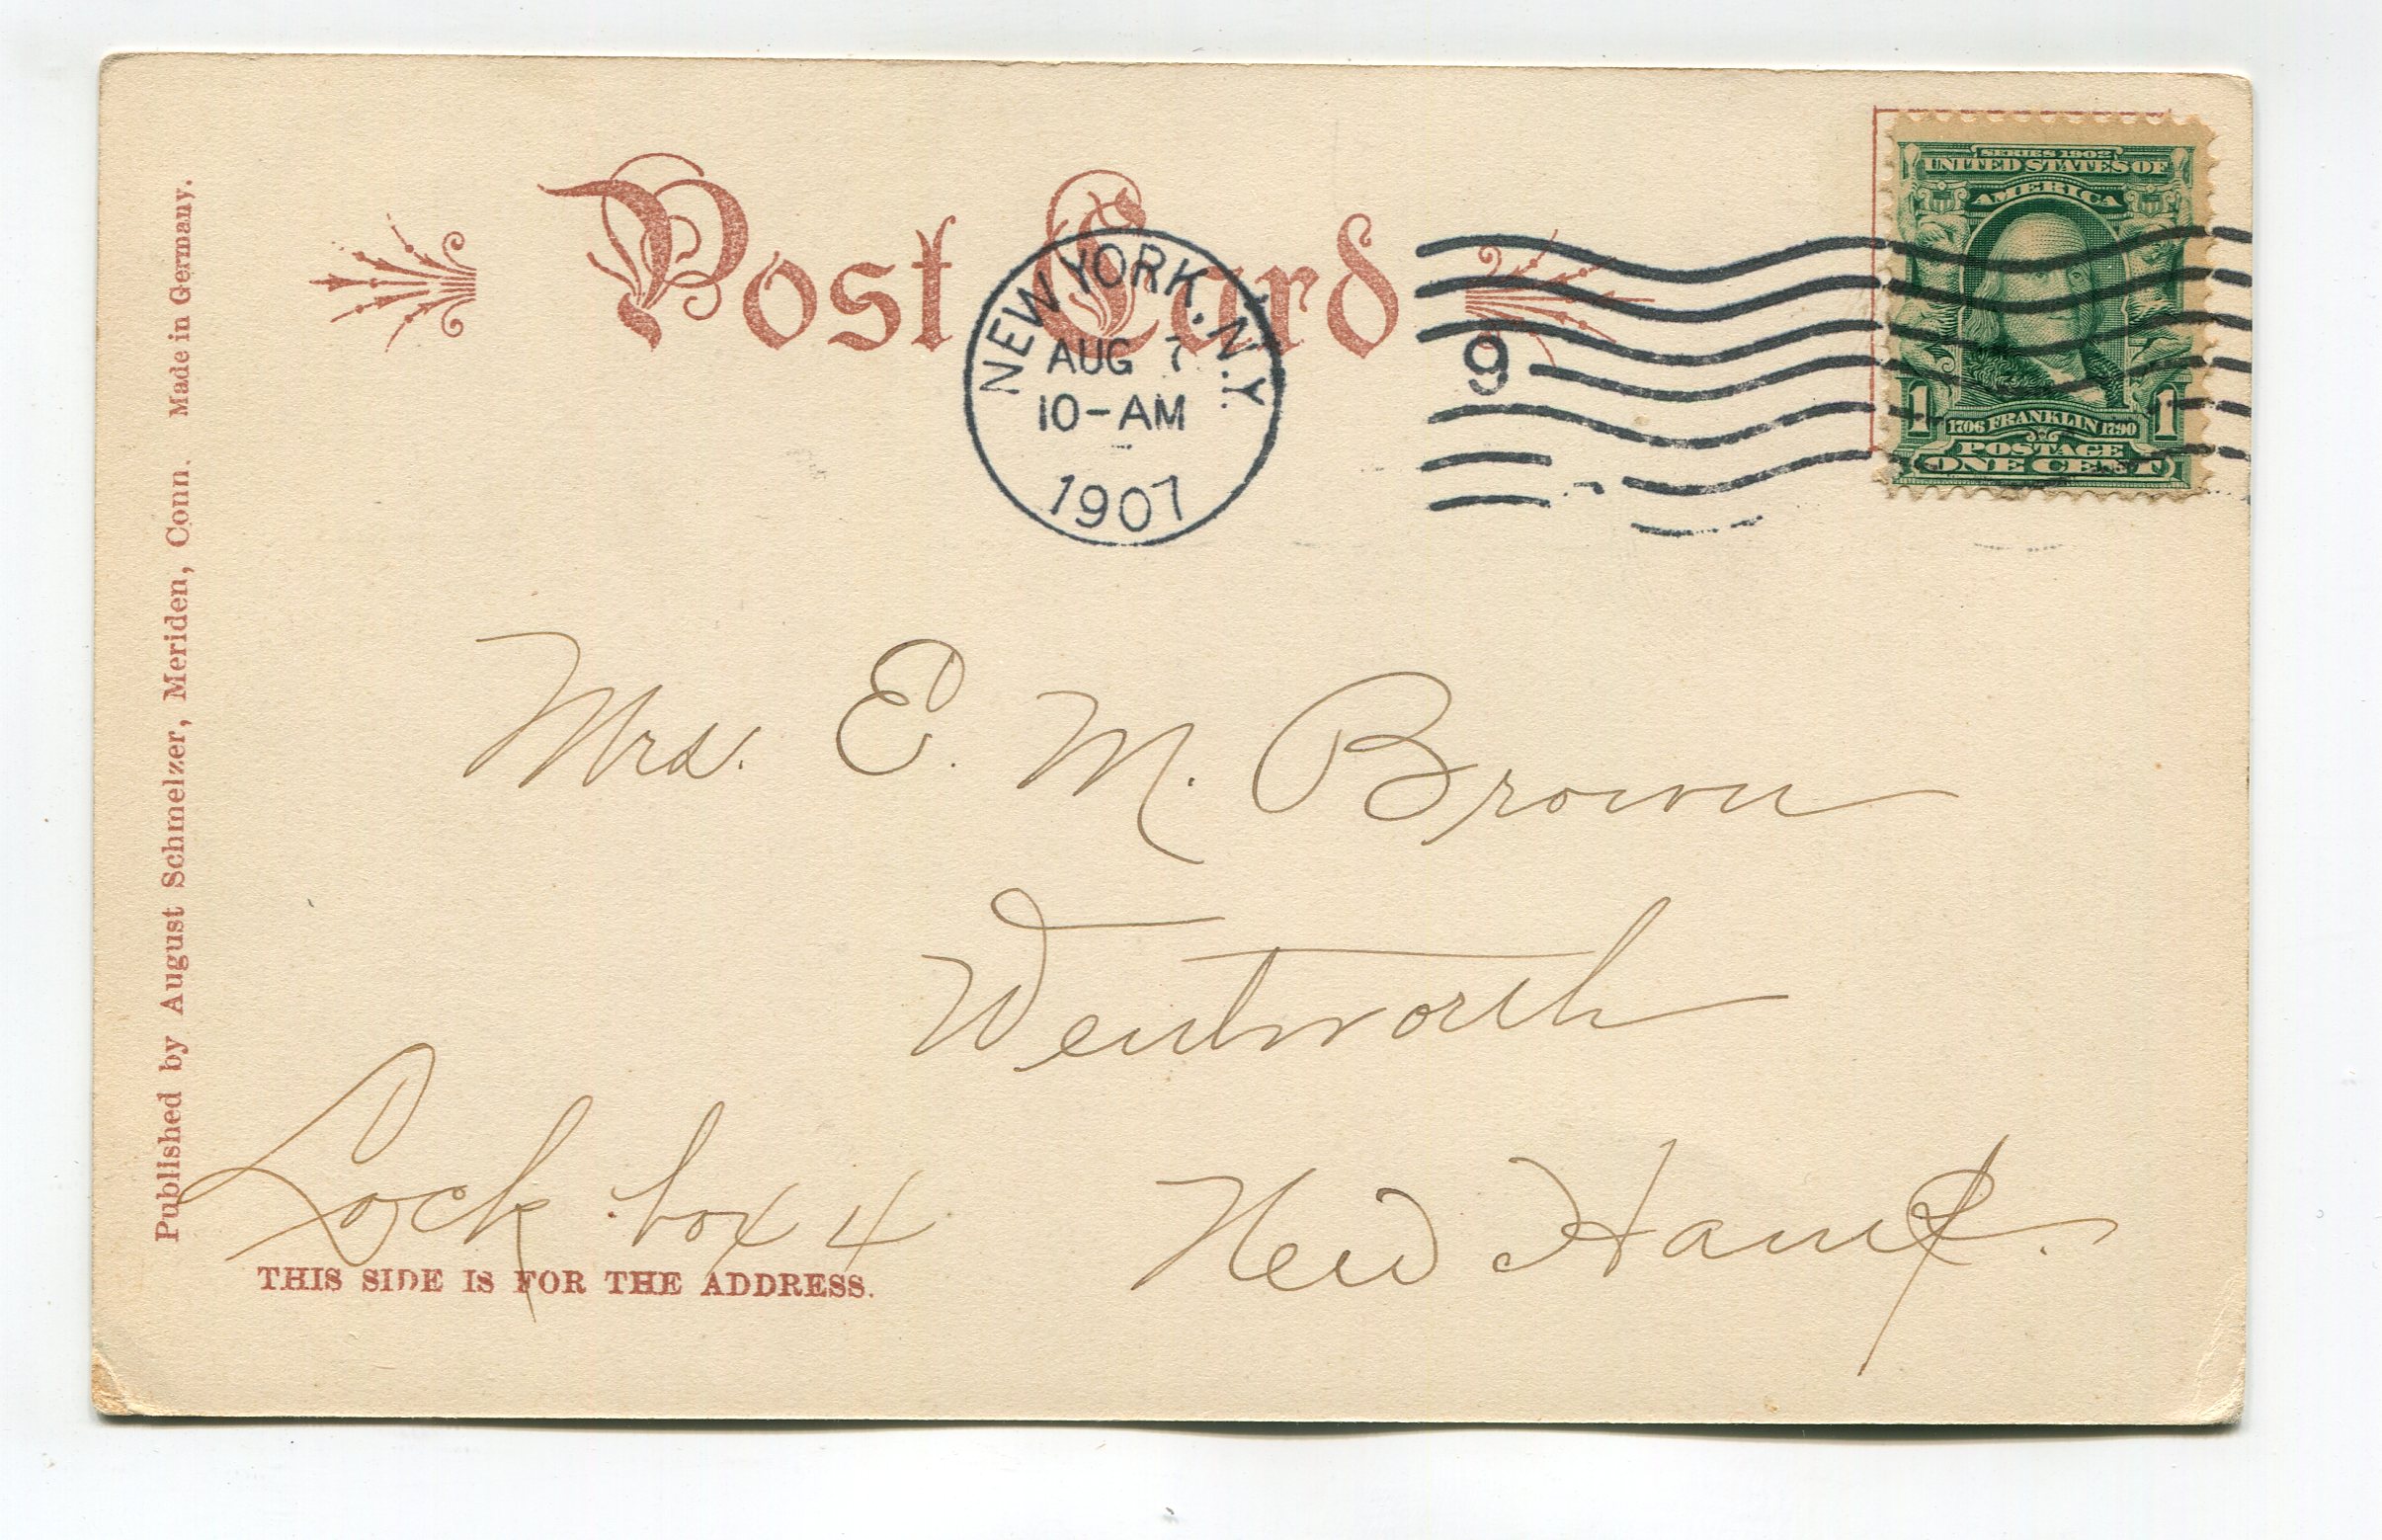 Post Card
NEW YORK, N.Y.
AUG 7
10-AM
1907
9
SERIES 1902
UNITED STATES OF
AMERICA
1 1706 FRANKLIN 1790 1
POSTAGE
ONE CENT
Published by August Schmelzer, Meriden, Conn. Made in Germany.
Mrs. E. M. Brown
Wentworth
Lock box 4 New Hamp.
THIS SIDE IS FOR THE ADDRESS.